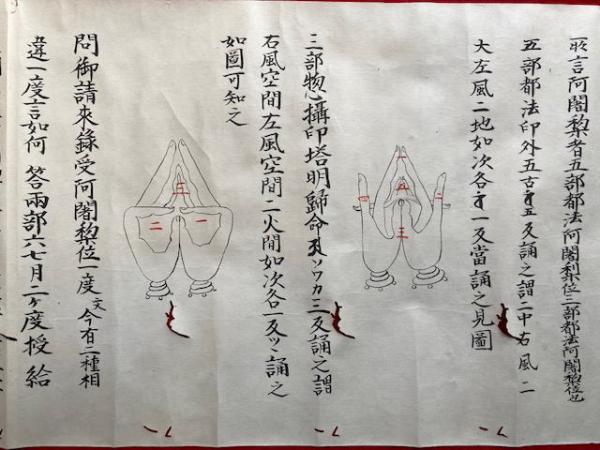 所言阿闍梨者五部都法阿闍梨位三部都法阿闍梨位也
五部都法印外五古五反誦之謂二中右風二
大左風二地如次各一反當誦之見圖
三部惣攝印塔明歸命ソワカ三反誦之謂
右風空間左風空間二火間如次各一反ツヽ誦之
如圖可知之
三
二
一
問御請來錄受阿闍梨位一度文今有二種相
違一度言如何 答兩部六七月二ケ度授給